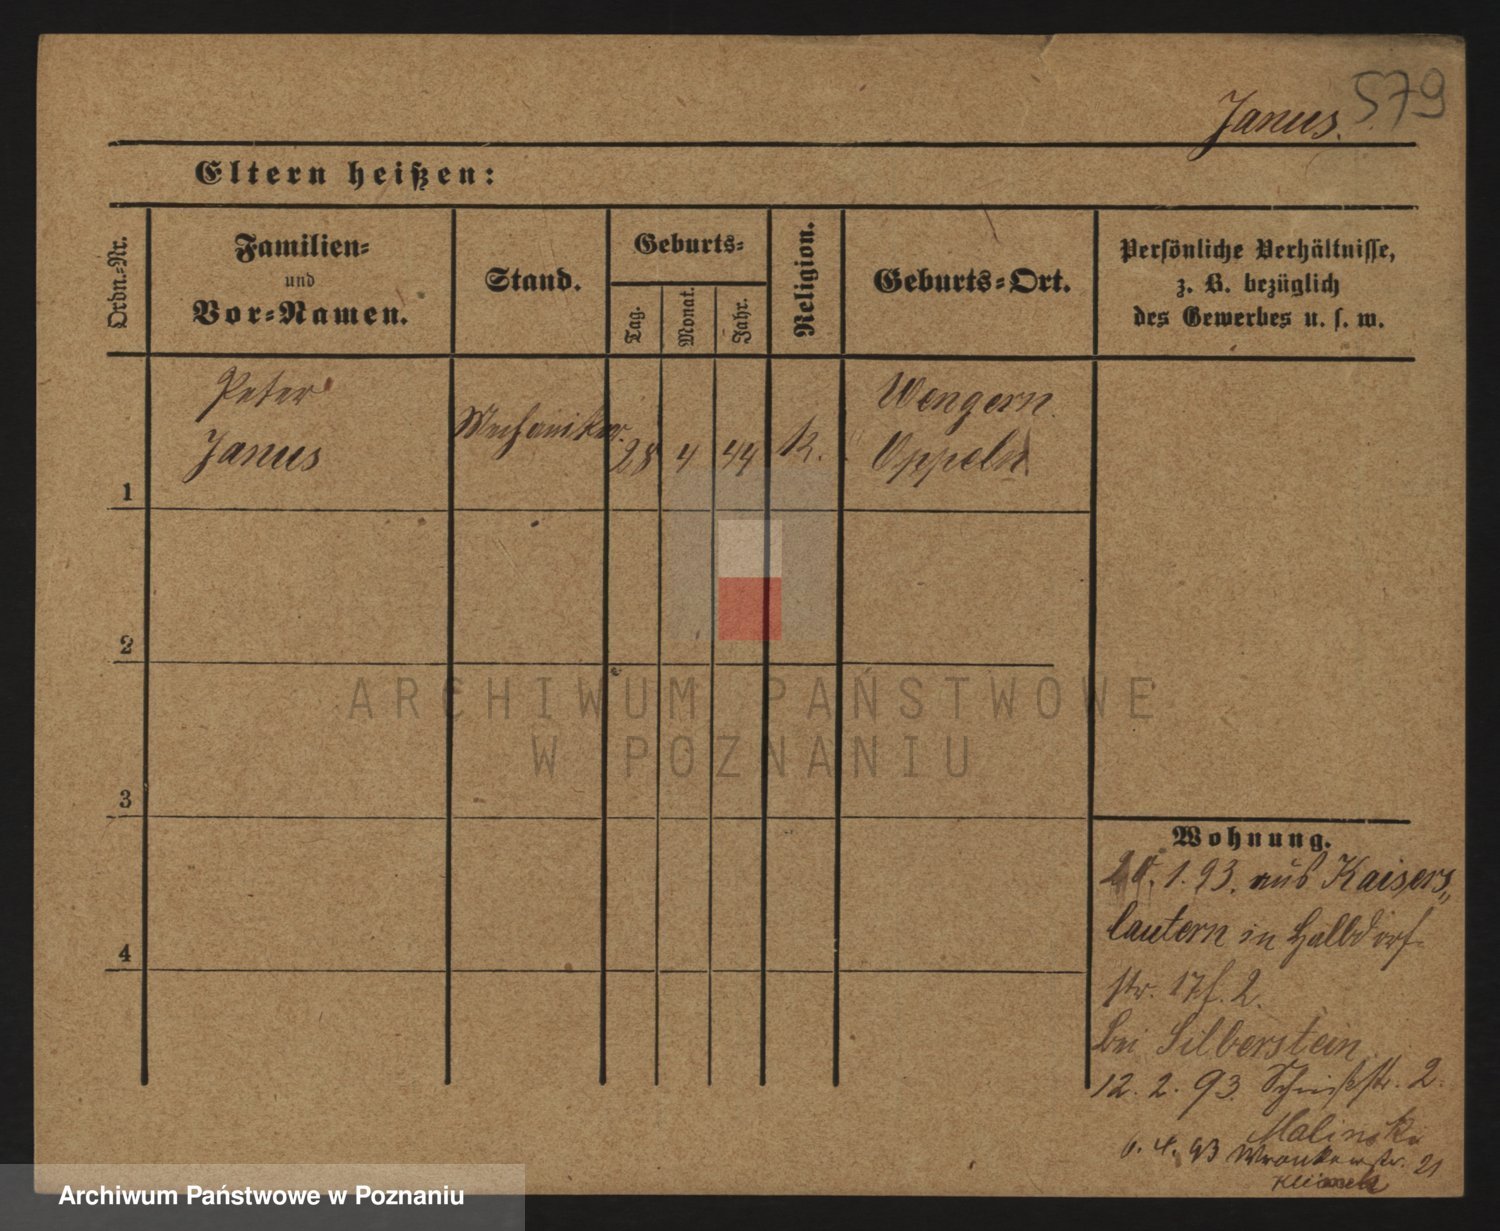 579
Janus.
Eltern heißen:
Ordn.-Nr.
Familien-
und
Vor-Namen.
Stand.
Geburts-
Tag.
Monat.
Jahr.
Religion.
Geburts-Ort.
Persönliche Verhältnisse,
z. B. bezüglich
des Gewerbes u. s. w.
1
Peter
Janus
Mechaniker.
28
4
44
K.
Wengern
Oppeln
2
3
4
Wohnung.
1. 93. aus Kaisers„
lautern in Halbdorf-
str. 17f. 2.
bei Silberstein
12. 2. 93. 2.
6. 4. 93 Wronkerstr. 21
ARCHIWUM PAŃSTWOWE
W POZNANIU
Archiwum Państwowe w Poznaniu